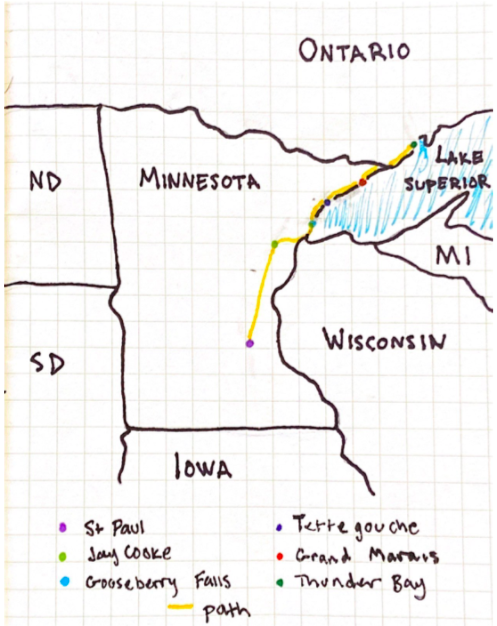 ONTARIO
ND
MINNESOTA
LAKE
SUPERIOR
MI
SD
WISCONSIN
IOWA
St Paul
Jay Cooke
Gooseberry Falls
Tettegouche
Grand Marais
Thunder Bay
path